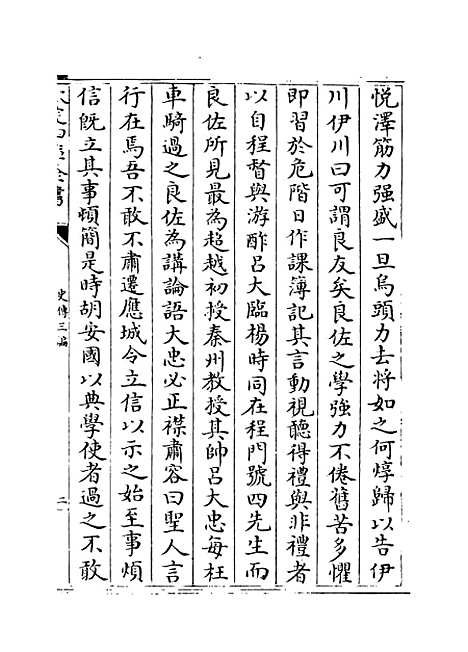 悦澤筋力强盛一旦烏頭力去將如之何惇歸以告伊
川伊川曰可謂良友矣良佐之學強力不倦舊苦多懼
即習於危階日作課簿記其言動視聽得禮與非禮者
以自程督與游酢呂大臨楊時同在程門號四先生而
良佐所見最為超越初授秦州教授其帥呂大忠每枉
車騎過之良佐為講論語大忠必正襟肅容曰聖人言
行在焉吾不敢不肅遷應城令立信以示之始至事煩
信既立其事頓簡是時胡安國以典學使者過之不敢
史傳三編
二